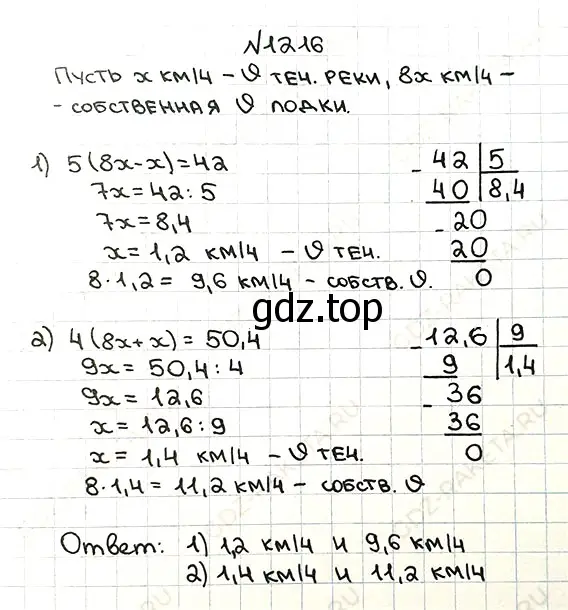 №1216
Пусть x км/ч – υ теч. реки, 8x км/ч –
– собственная υ лодки.
1) 5(8x-x)=42
7x=42:5
7x=8,4
x=1,2 км/ч – υ теч.
8·1,2= 9,6 км/ч – собств. υ.
- 42 5
40 8,4
- 20
20
0
gdz.top
2) 4(8x+x)= 50,4
9x= 50,4:4
9x= 12,6
x= 12,6:9
x= 1,4 км/ч – υ теч.
8·1,4= 11,2 км/ч – собств. υ
- 12,6 9
9 1,4
- 36
36
0
Ответ: 1) 1,2 км/ч и 9,6 км/ч
2) 1,4 км/ч и 11,2 км/ч
GDZ-RAKETA.RU